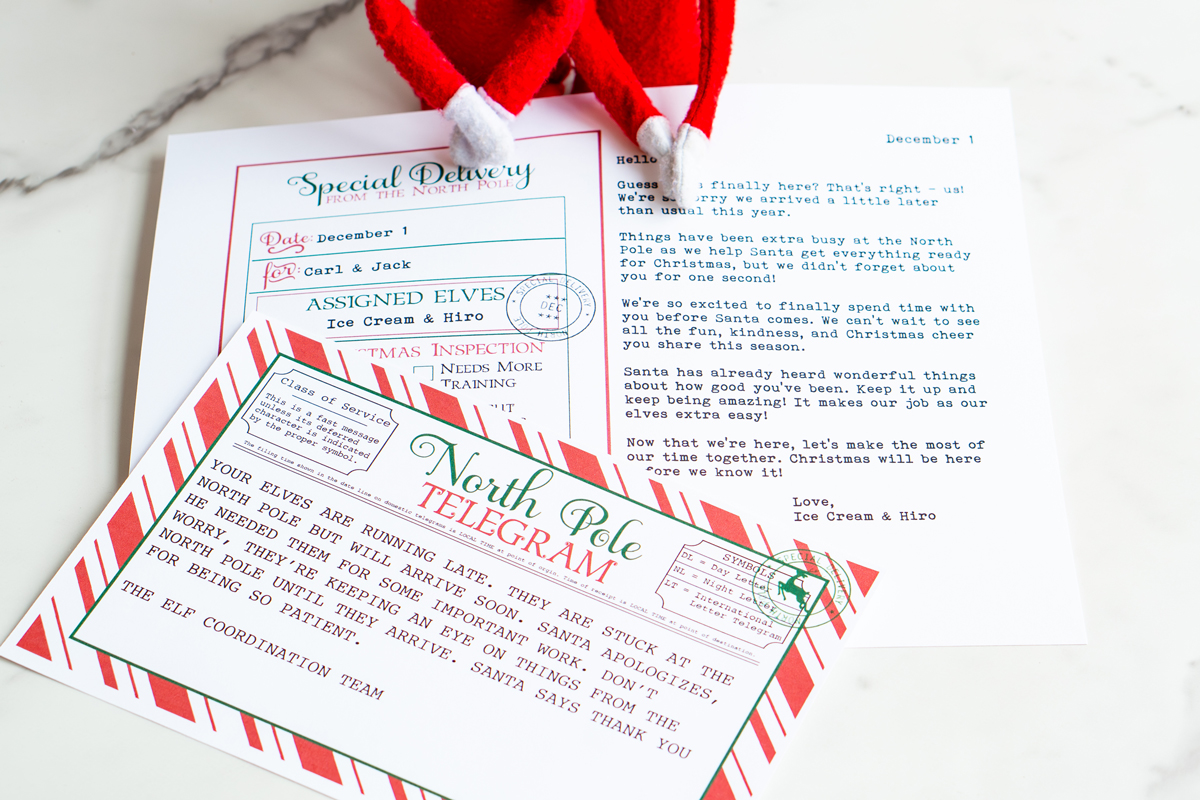 Special Delivery
FROM THE NORTH POLE
Date: December 1
for: Carl & Jack
ASSIGNED ELVES
Ice Cream & Hiro
SPECIAL DELIVERY
DEC
INSPECTION
NEEDS MORE
TRAINING
December 1
Hello
Guess finally here? That's right - us!
We're arrived a little later
than usual this year.
Things have been extra busy at the North
Pole as we help Santa get everything ready
for Christmas, but we didn't forget about
you for one second!
We're so excited to finally spend time with
you before Santa comes. We can't wait to see
all the fun, kindness, and Christmas cheer
you share this season.
Santa has already heard wonderful things
about how good you've been. Keep it up and
keep being amazing! It makes our job as our
elves extra easy!
Now that we're here, let's make the most of
our time together. Christmas will be here
we know it!
Love,
Ice Cream & Hiro
Class of Service
This is a fast message
unless its deferred
character is indicated
by the proper symbol.
North Pole
TELEGRAM
SYMBOLS
DL = Day Letter
NL = Night Letter
LT = International
Letter Telegram
SPECIAL DELIVERY
The filing time shown in the date line on domestic telegrams is LOCAL TIME at point of orgin. Time of receipt is LOCAL TIME at point of destination.
YOUR ELVES ARE RUNNING LATE. THEY ARE STUCK AT THE
NORTH POLE BUT WILL ARRIVE SOON. SANTA APOLOGIZES,
HE NEEDED THEM FOR SOME IMPORTANT WORK. DON'T
WORRY, THEY'RE KEEPING AN EYE ON THINGS FROM THE
NORTH POLE UNTIL THEY ARRIVE. SANTA SAYS THANK YOU
FOR BEING SO PATIENT.
THE ELF COORDINATION TEAM